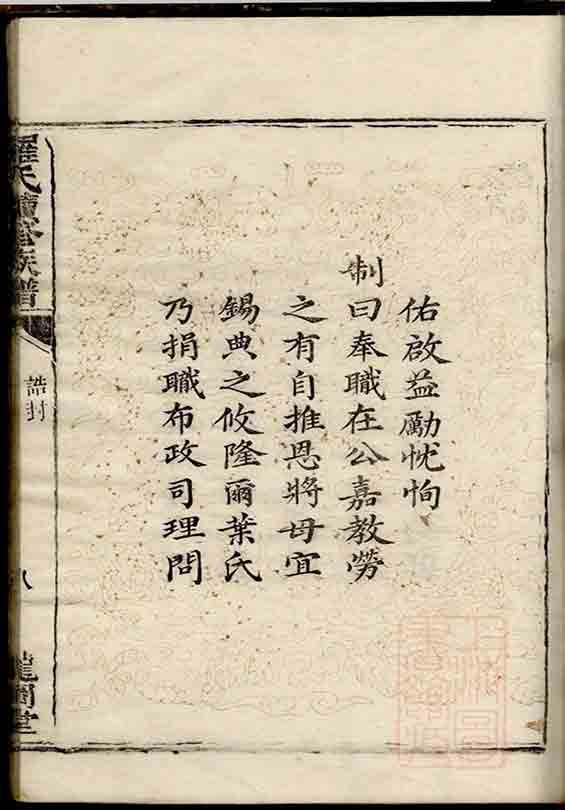 佑啟益勵忱恂
制曰奉職在公嘉教勞
之有自推恩將母宜
錫典之攸隆爾葉氏
乃捐職布政司理問
羅氏續修族譜
誥封
八